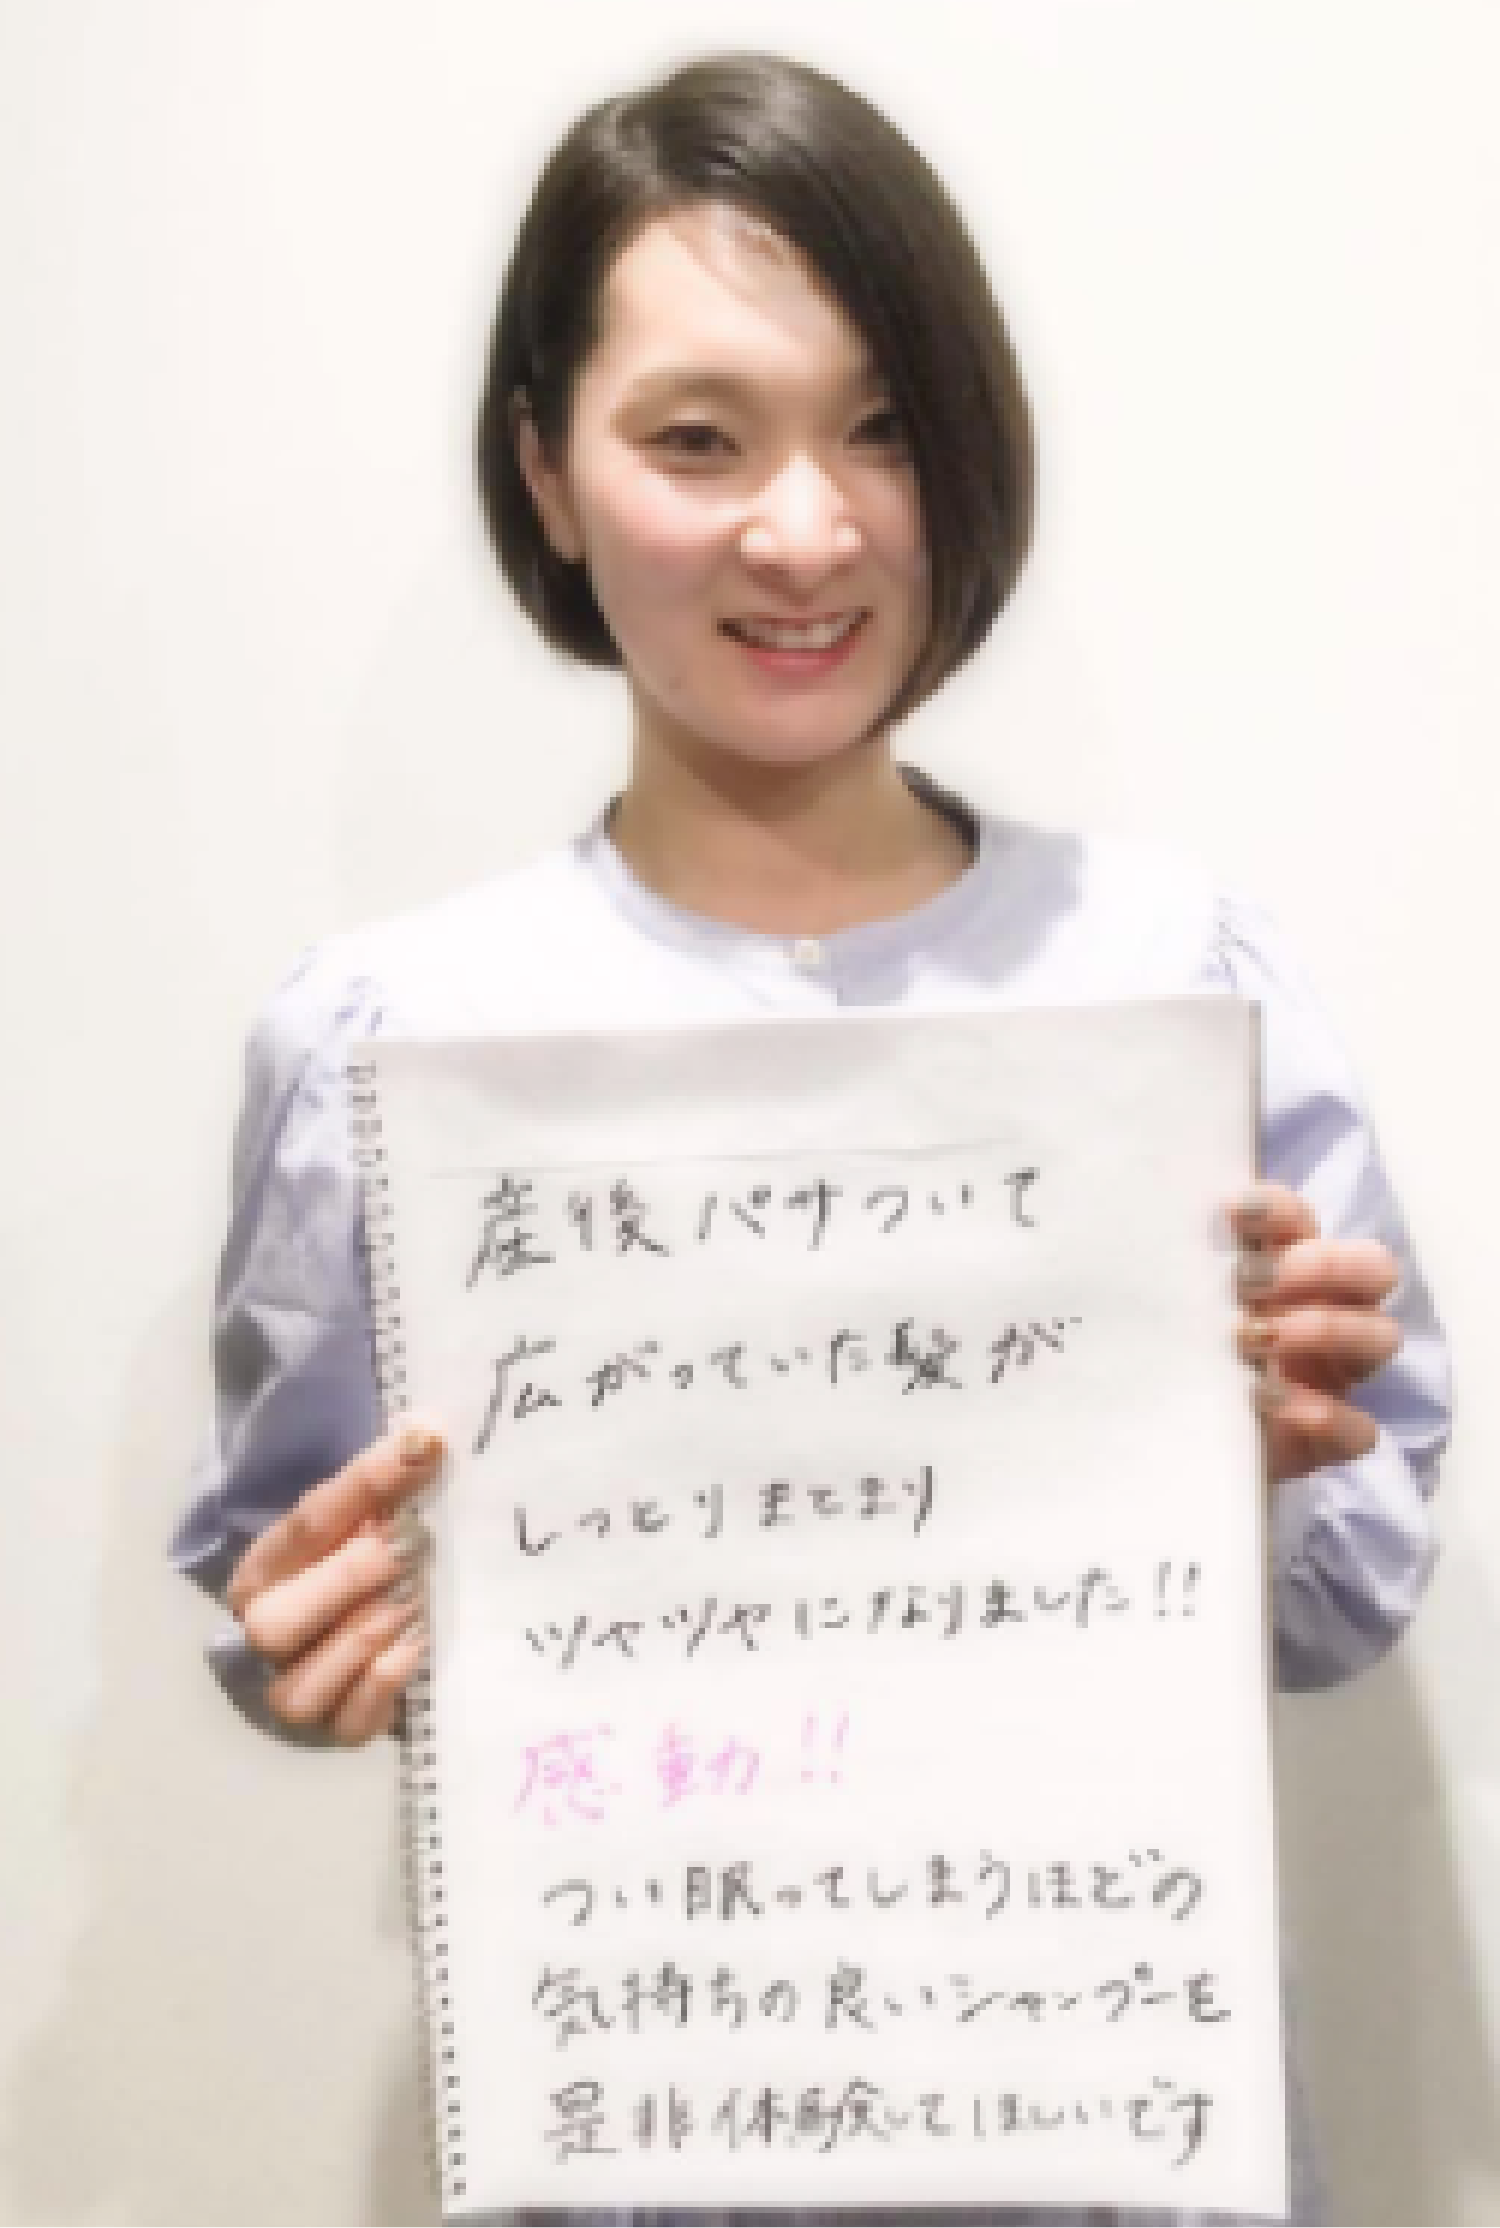 産後パサついて
広がっていた髪が
しっとりまとまり
ツヤツヤになりました!!
感動!!
つい眠ってしまうほどの
気持ちの良いシャンプーを
是非体験してほしいです